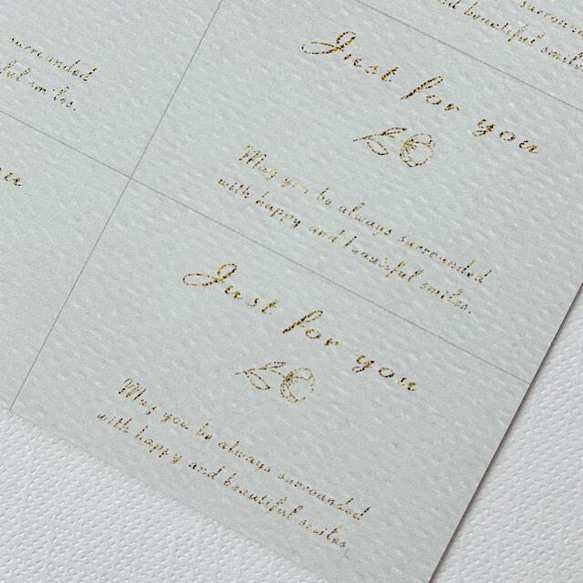 surrounded
and beautiful smiles
surrounded
smiles.
Just for you
May you be always surrounded
with happy and beautiful smiles.
Just for you
May you be always surrounded
with happy and beautiful smiles.